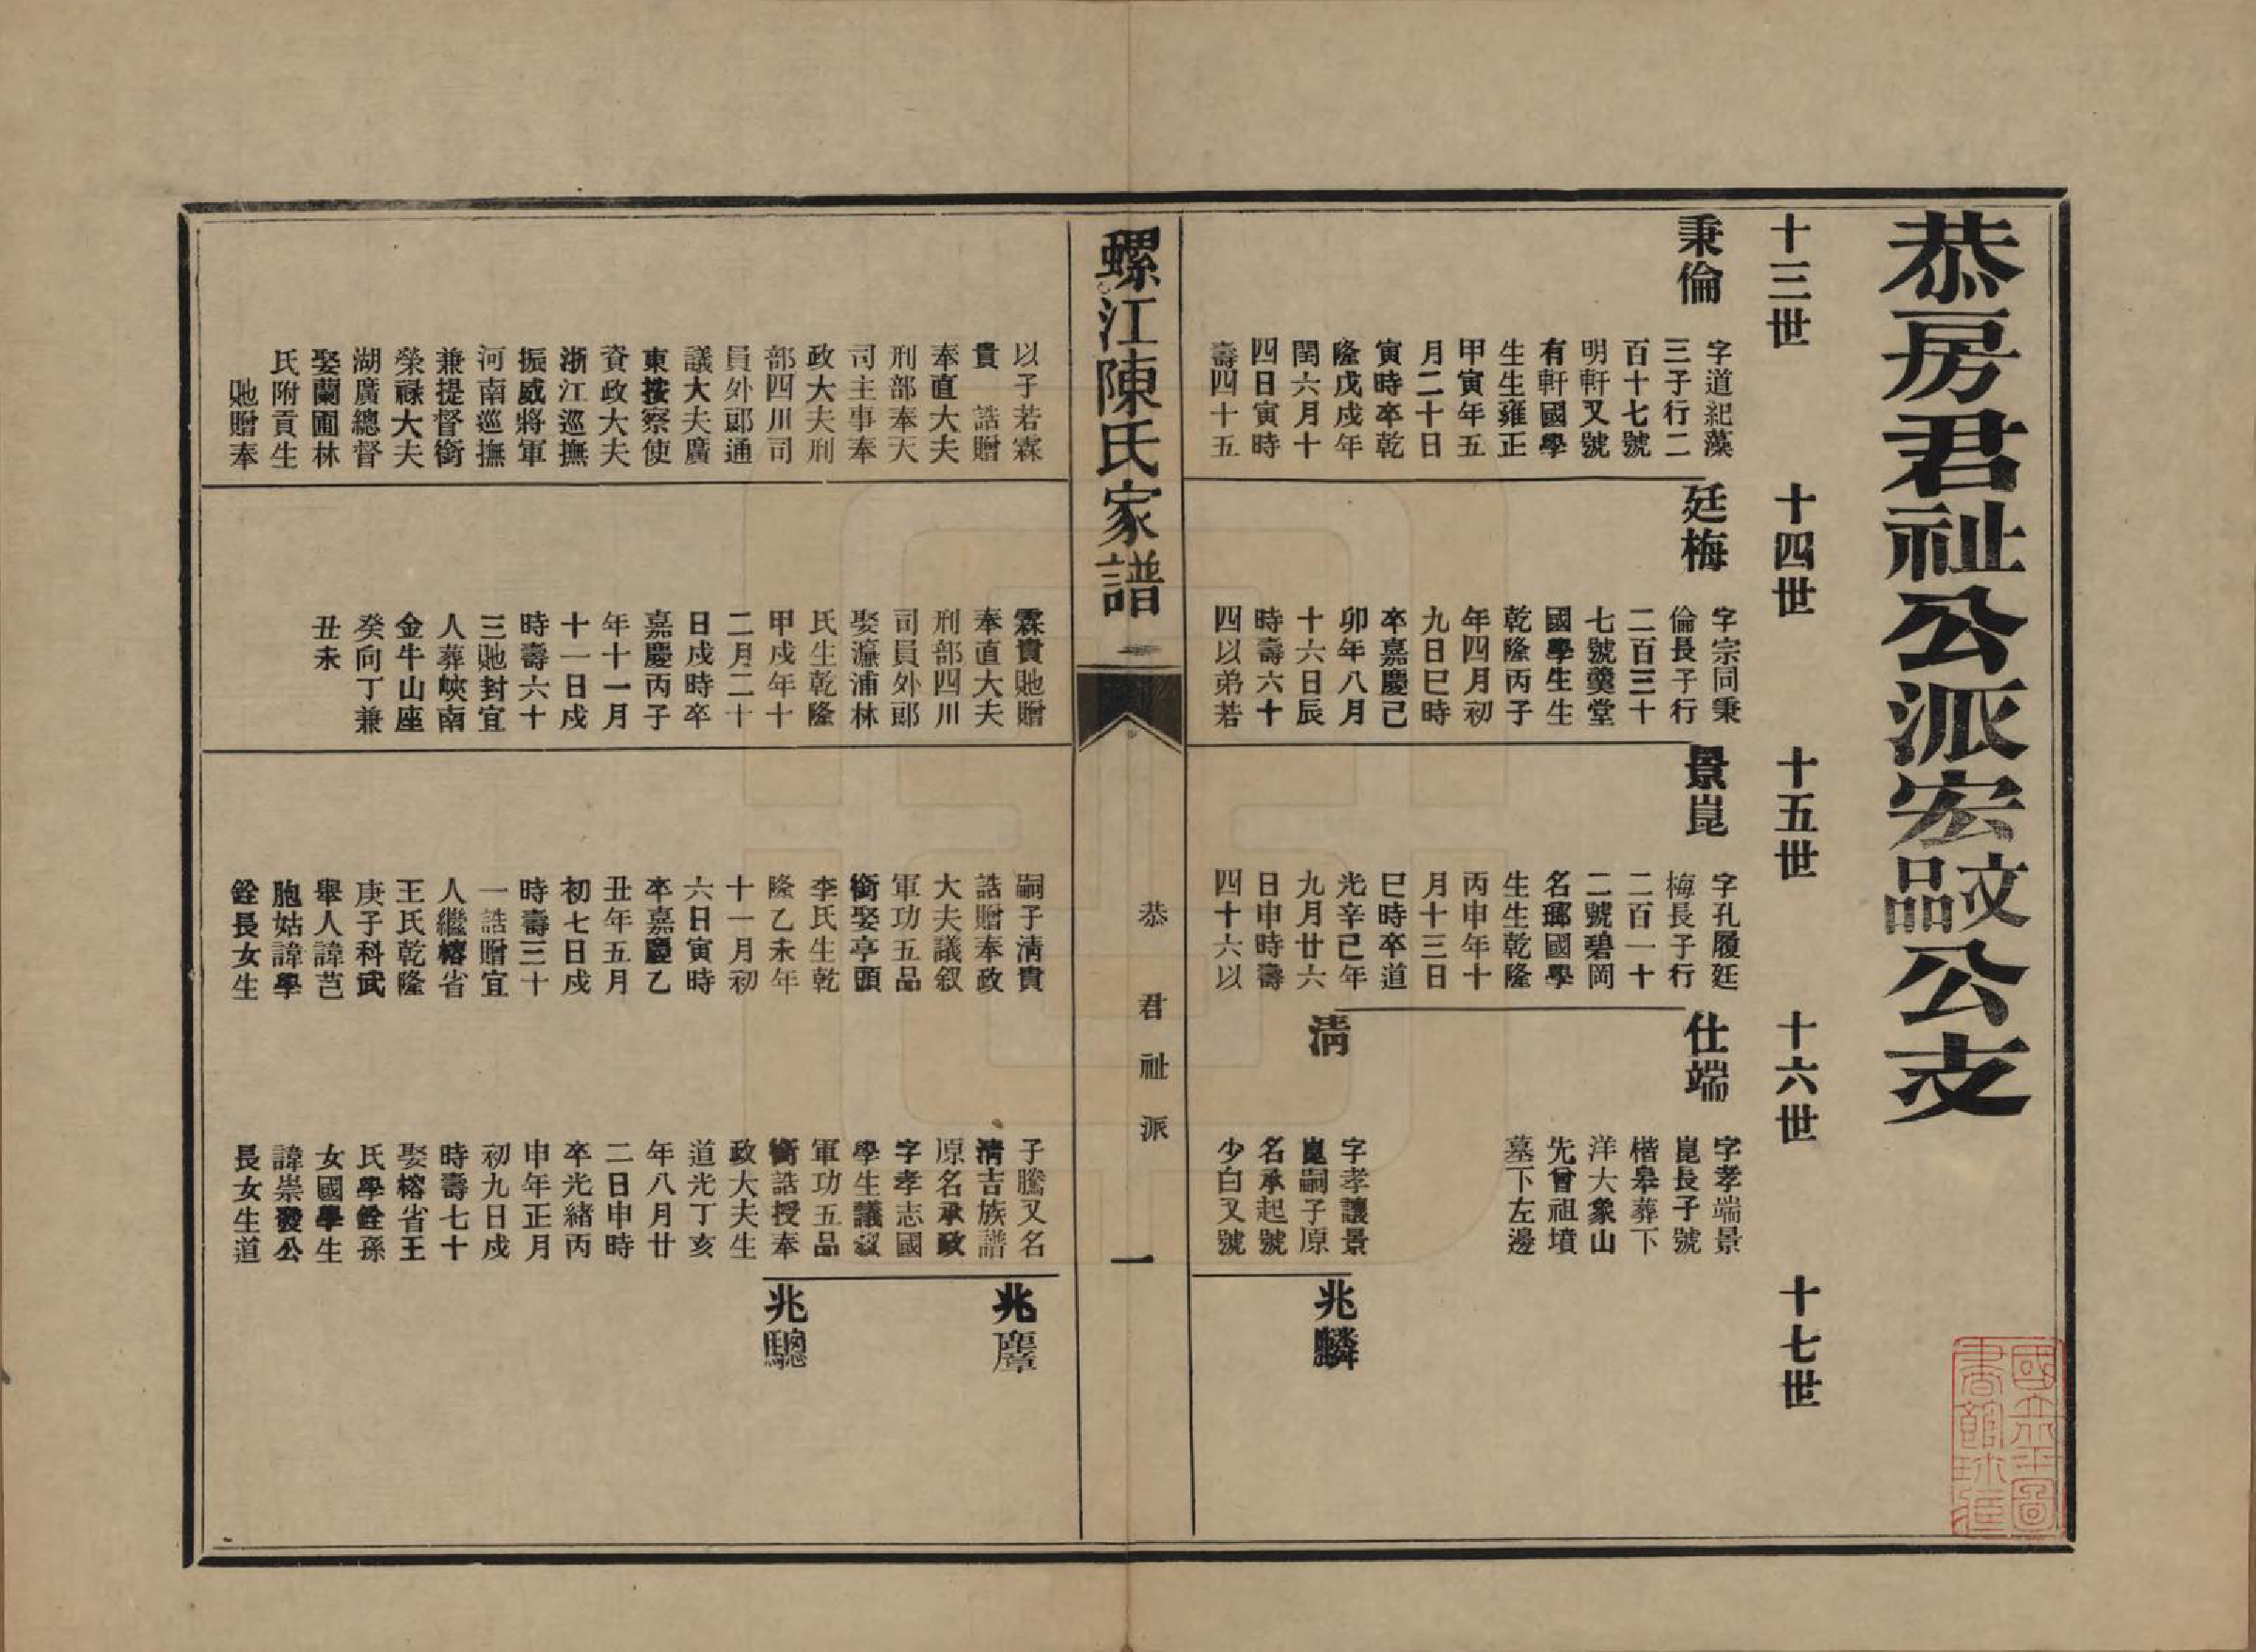 恭房君祉公派宏㱔公支
十三世
十四世
十五世
十六世
十七世
秉倫
字道紀藻
三子行二
百十七號
明軒又號
有軒國學
生生雍正
甲寅年五
月二十日
寅時卒乾
隆戊戌年
閏六月十
四日寅時
壽四十五
廷梅
字宗同秉
倫長子行
二百三十
七號羹堂
國學生生
乾隆丙子
年四月初
九日巳時
卒嘉慶己
卯年八月
十六日辰
時壽六十
四以弟若
景崑
字孔履廷
梅長子行
二百一十
二號碧岡
名瑯國學
生生乾隆
丙申年十
月十三日
巳時卒道
光辛巳年
九月廿六
日申時壽
四十六以
仕端
字孝端景
崑長子號
楷皋葬下
洋大象山
先曾祖墳
墓下左邊
清
字孝讓景
崑嗣子原
名承起號
少白又號
兆驎
螺江陳氏家譜
恭 君祉派 一
以子若霖
貴 誥贈
奉直大夫
刑部奉天
司主事奉
政大夫刑
部四川司
員外郎通
議大夫廣
東按察使
資政大夫
浙江巡撫
振威將軍
河南巡撫
兼提督銜
榮祿大夫
湖廣總督
娶蘭圃林
氏附貢生
貤贈奉
霖貴貤贈
奉直大夫
刑部四川
司員外郎
娶濂浦林
氏生乾隆
甲戌年十
二月二十
日戌時卒
嘉慶丙子
年十一月
十一日戌
時壽六十
三貤封宜
人葬峽南
金牛山座
癸向丁兼
丑未
嗣子淸貴
誥贈奉政
大夫議叙
軍功五品
銜娶亭頭
李氏生乾
隆乙未年
十一月初
六日寅時
卒嘉慶乙
丑年五月
初七日戌
時壽三十
一誥贈宜
人繼榕省
王氏乾隆
庚子科武
舉人諱芑
胞姑諱學
銓長女生
子騰又名
淸吉族譜
原名承政
字孝志國
學生議叙
軍功五品
銜誥授奉
政大夫生
道光丁亥
年八月廿
二日申時
卒光緒丙
申年正月
初九日戌
時壽七十
娶榕省王
氏學銓孫
女國學生
諱崇發公
長女生道
兆麞
兆驄
國立北平圖
書館珍藏